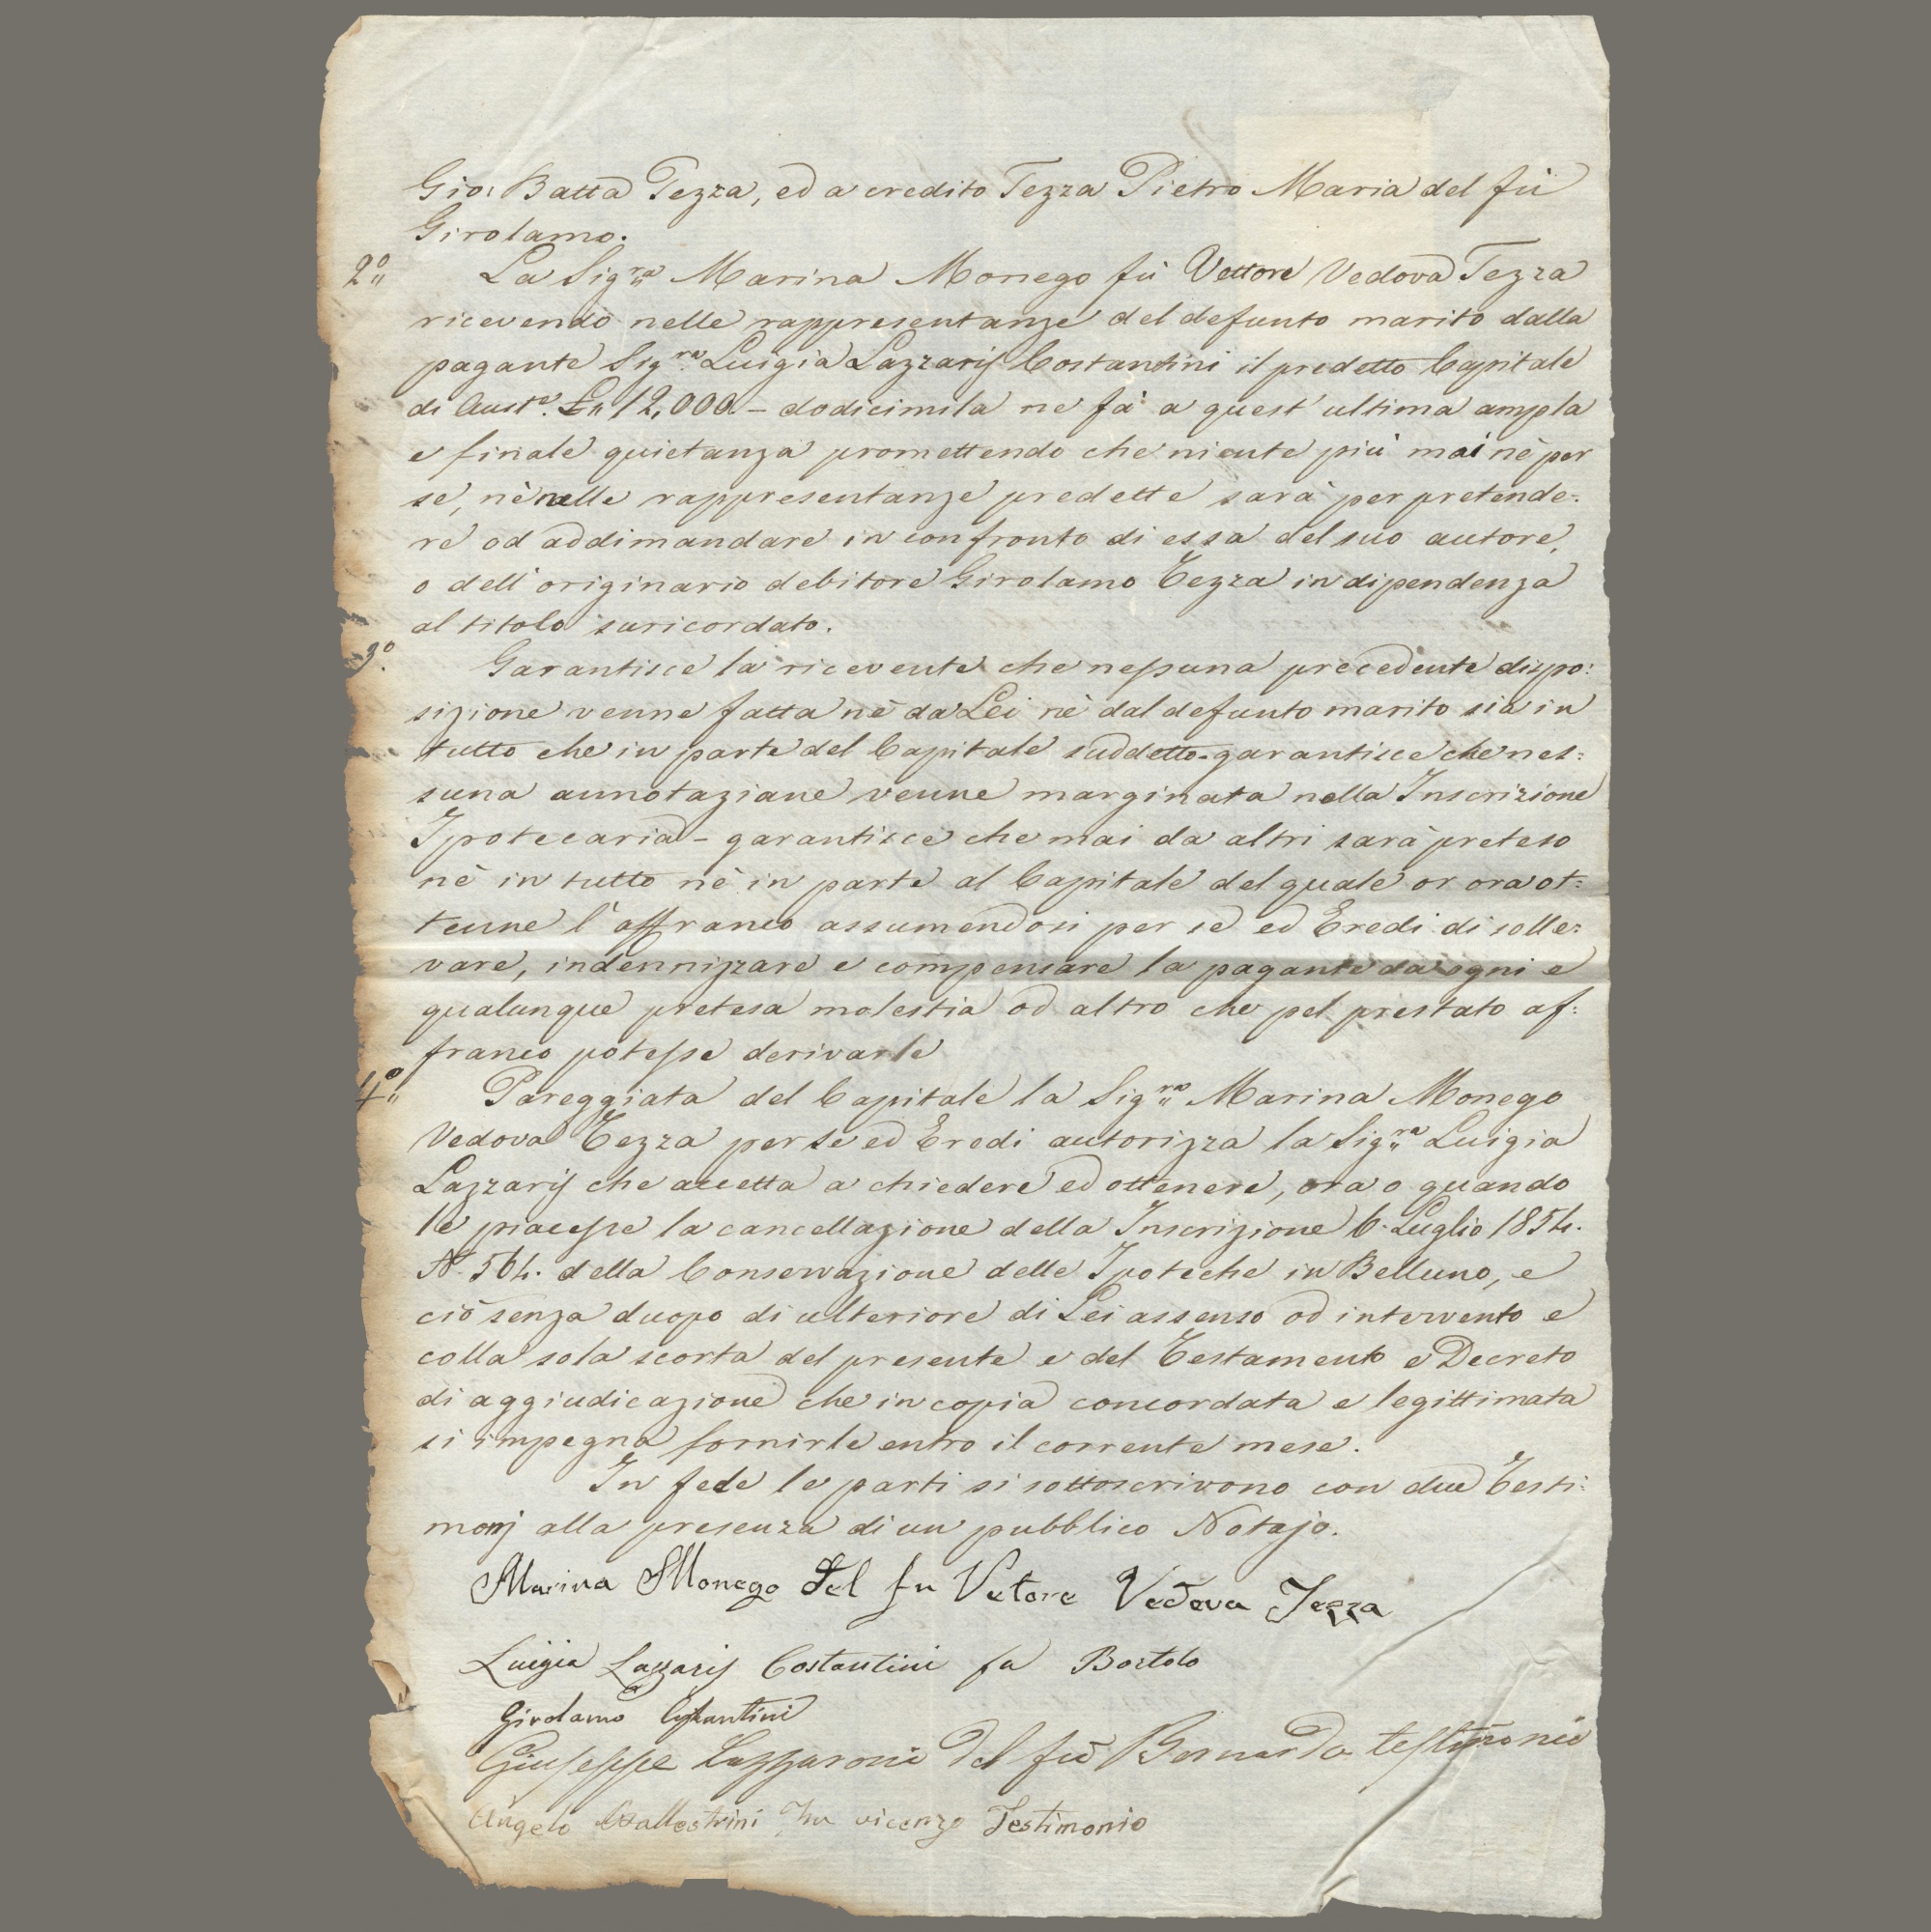 Gio: Batta Tezza, ed a credito Tezza Pietro Maria del fù
Girolamo.
2.º La Sig.ra Marina Monego fù Vettore Vedova Tezza
ricevendo nelle rappresentanze del defunto marito dalla
pagante Sig.ra Luigia Lazzaris Costantini il predetto Capitale
di Aust.e £" 12,000 - dodicimila ne fà a quest' ultima ampla
e finale quietanza promettendo che niente più mai nè per
se, nè nelle rappresentanze predette sarà per pretende=
re od addimandare in confronto di essa del suo autore,
o dell' originario debitore Girolamo Tezza in dipendenza
al titolo suricordato.
3.º Garantisce la ricevente che nessuna precedente dispo=
sizione venne fatta nè da Lei nè dal defunto marito sia in
tutto che in parte del Capitale suddetto - garantisce che nes=
suna annotazione venne marginata nella Inscrizione
Ipotecaria - garantisce che mai da altri sarà preteso
nè in tutto nè in parte al Capitale del quale or ora ot=
tenne l' affranco assumendosi per se ed Eredi di solle=
vare, indennizzare e compensare la pagante da ogni e
qualunque pretesa molestia od altro che pel prestato af=
franco potesse derivarle
4.º Pareggiata del Capitale la Sig.ra Marina Monego
Vedova Tezza per se ed Eredi autorizza la Sig.ra Luigia
Lazzaris che accetta a chiedere ed ottenere, ora o quando
le piacesse la cancellazione della Inscrizione 6. Luglio 1854.
N. 564. della Conservazione delle Ipoteche in Belluno, e
ciò senza duopo di ulteriore di Lei assenso od intervento e
colla sola scorta del presente e del Testamento e Decreto
di aggiudicazione che in copia concordata e legittimata
si impegna fornirle entro il corrente mese.
In fede le parti si sottoscrivono con due Testi=
monj alla presenza di un pubblico Notajo.
Marina Monego del fu Vetore Vedova Tezza
Luigia Lazzaris Costantini fu Bortolo
Girolamo Costantini
Giuseppe Lazzaroni del fù Bernardo testimonio
Angelo fu vicenzo Testimonio